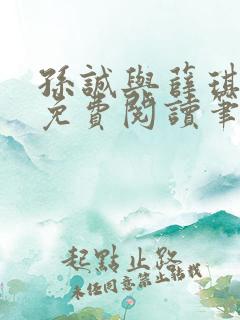 孫誠與薛琪
免費閱讀筆
起點止路
未經同意禁止轉載